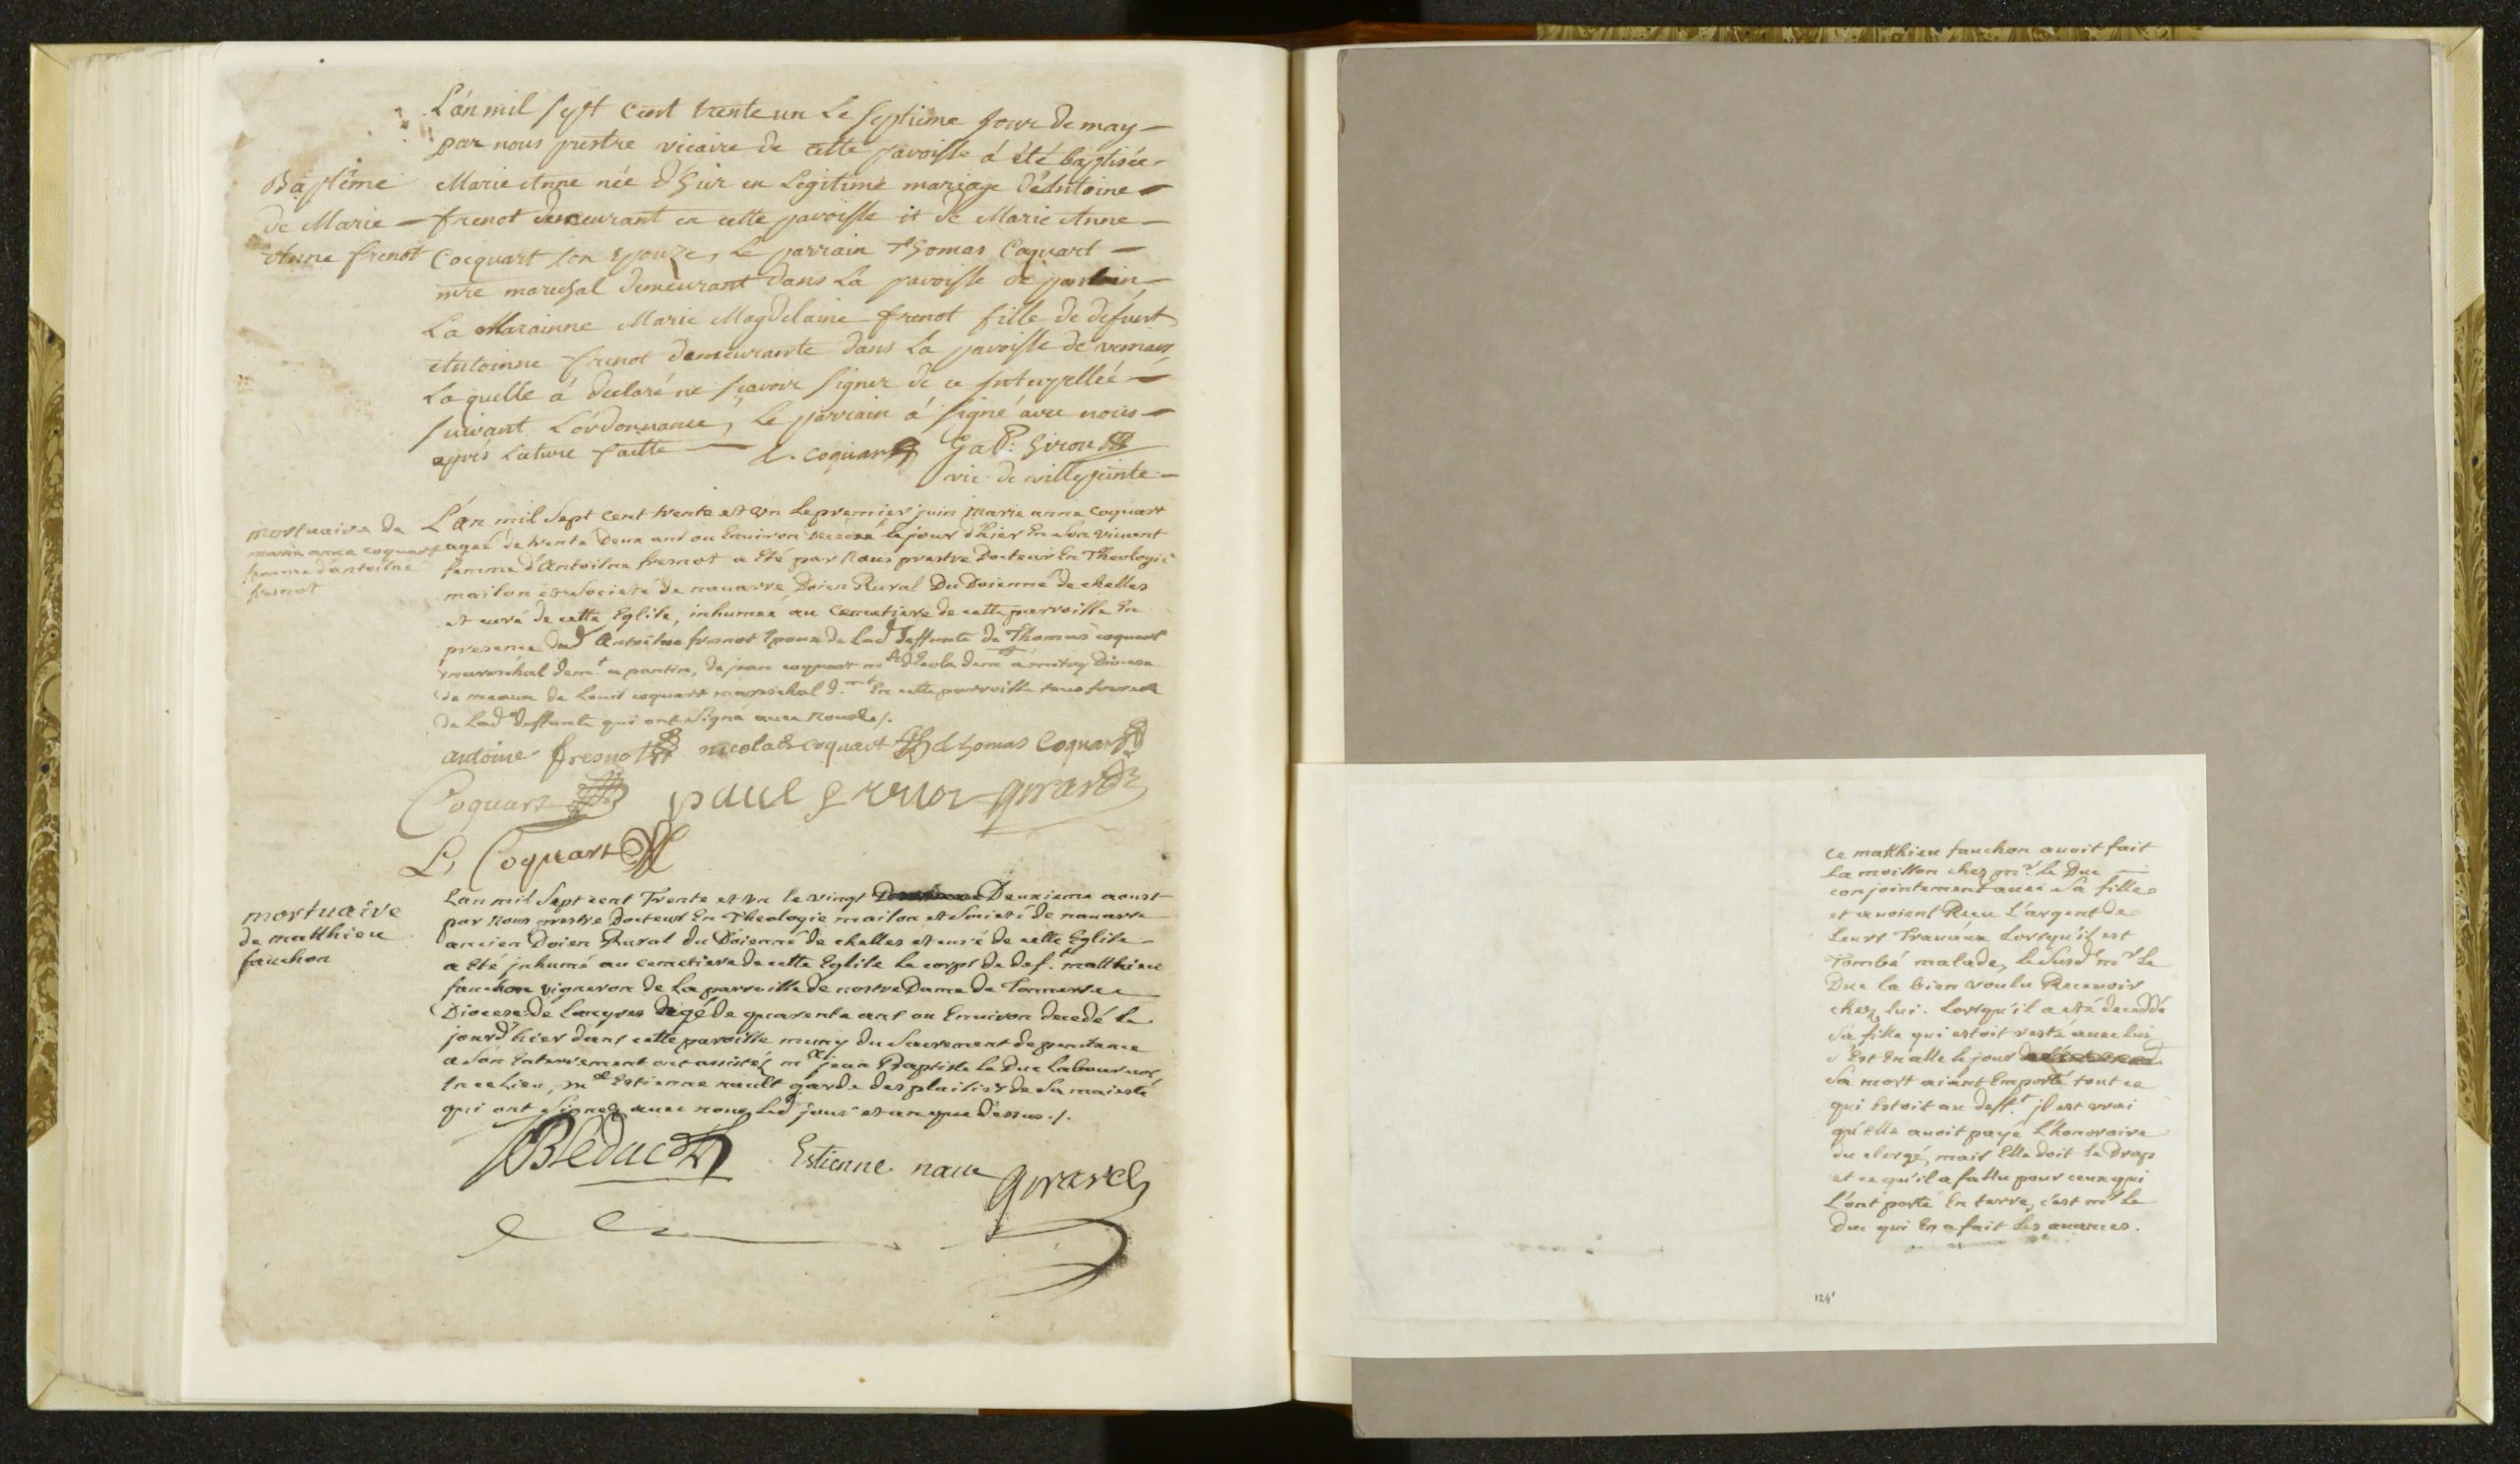 L'an mil sept cent trente un le septieme jour de may
par nous prestre vicaire de cette paroisse á été baptisée
Marie Anne née d'hier en legitime mariage d'Antoine
frenot demeurant en cette paroisse et de Marie Anne
Cocquart son epouze, Le parrain Thomas Coquart
mre marechal demeurant dans La paroisse de pantin
La Marainne Marie Magdelaine frenot fille de defunt
Antoinne frenot demeurante dans La paroisse de
La quelle á declaré ne sçavoir signer de ce interpelleé
suivant L'ordonnance, Le parrain á signé avec nous
aprés lecture faitte
t. coquart GaP. Girou
vic. de villepeinte
Baptême
de Marie
Anne frenot
L'an mil sept cent trente et un le premier juin marie anne coquart
ageé de trente deux ans ou Environ decedeé le jour d'hier En son vivant
femme d'Antoine fresnot a Eté par Nous prestre Docteur En Theologie
maison et Societé de nauarre Doien Rural Du Doienné de chelles
et curé de cette Eglise, inhumeé au Cemetiere de cette parroisse En
presence dud Antoine fresnot Epoux de Lad deffunte de Thomas coquart
mareschal demt a pantin, de jean coquart me d'Ecole demt a mitry Diocese
de meaux de Louis coquart mareschal d.mt En cette parroisse tous freres
de Lad deffunte qui ont signé auec nous /.
mortuaire de
marie anne coquart
femme d'antoine
fresnot
antoine fresnot nicolas coquart thomas Coquart
Coquart paul Girard
L, Coquart
Lan mil Sept cent Trente et un le vingt Deuxieme aoust
par Nous prestre Docteur En Theologie maison et Societé de nauarre
ancien Doien Rural du Doienné de chelles et curé de cette Eglise
a Eté inhumé au cemetiere de cette Eglise le corps de def.t matthieu
fauchon vigneron de La parroisse de nostre Dame de Tonnerre
Diocese de Langres agé de quarente ans ou Enuiron decedé le
jour d'hier dans cette paroisse muny du Sacrement de penitence
a son Enterrement ont assistéz me jean Baptiste le Duc Laboureur
En ce Lieu, me Estienne nault garde des plaisirs de Sa maiesté
qui ont Signez auec nous Led jour et an que dessus ./.
mortuaire
de matthieu
fauchon
JBleduc Estienne naue Girard
ce matthieu fauchon auoit fait
la moisson chez mr. le Duc
conjointement auec Sa fille
et auoient Receu L'argent de
Leurs Trauaux Lorsqu'il est
Tombé malade, le Susd mr le
Duc la bien voulu Receuoir
chez lui. Lorsqu'il a eté decedé
Sa fille qui estoit resté auec lui
s'Est En allé le jour
Sa mort aiant Emporté tout ce
qui Estoit au deff.t jl est vrai
qu'elle auoit payé L'honoraire
du clergé, mais Elle doit Le Drap
et ce qu'il a fallu pour ceux qui
L'ont porté En terre, c'est mr le
Duc qui En a fait les auances.
124'